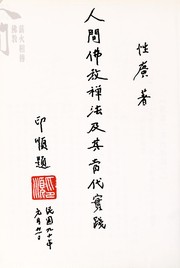 性廣 著
人間佛教禪法及其當代實踐
印順題
民國九十年
元月廿一日